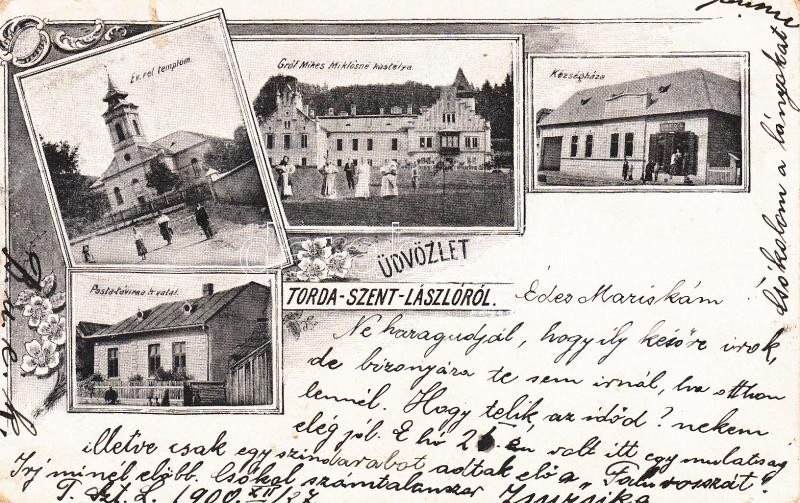 Ev. ref. templom.
Gróf Mikes Miklósné kastélya.
Községháza
Posta-távirda hivatal.
ÜDVÖZLET
TORDA-SZENT-LÁSZLÓRÓL.
Édes Mariskám!
Ne haragudjál, hogy ily későre irok,
de bizonyára te sem irnál, ha otthon
lennél. Hogy telik az időd? nekem
elég jól. E hó volt itt egy mulatság
illetve csak egy szindarabot adtak elő a "Falurosszát"
Irj minél előbb. Csókol számtalanszor Zsuzsika
T. Szt. L. 1900 XII/27
Csókolom a lányokat